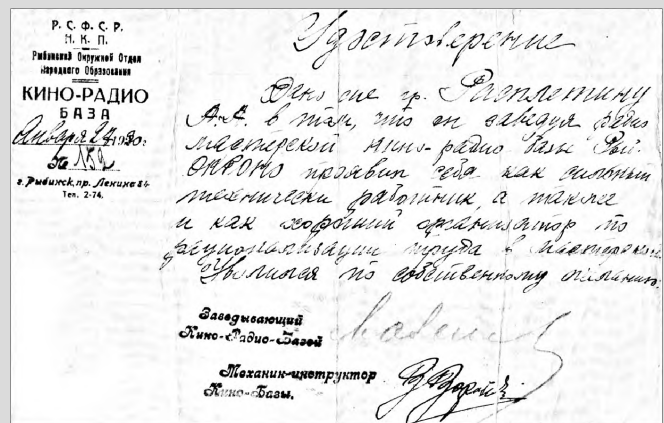 Р. С. Ф. С. Р.
Н. К. П.
Рыбинский Окружной Отдел
Народного Образования
КИНО-РАДИО
БАЗА
Января 1930 г.
№ 152
г. Рыбинск, пр. Ленина 54
Тел. 2-74.
Удостоверение
Дано сие гр. Расплетину
А.А. в том, что он заведуя радио
мастерской Кино-радио базы Рыб.
ОКРОНО проявил себя как сильный
технически работник, а также
и как хороший организатор по
рационализации труда в мастерской.
Уволился по собственному желанию.
Заведывающий
Кино-Радио-Базой
Механик-инструктор
Кино-Базы.